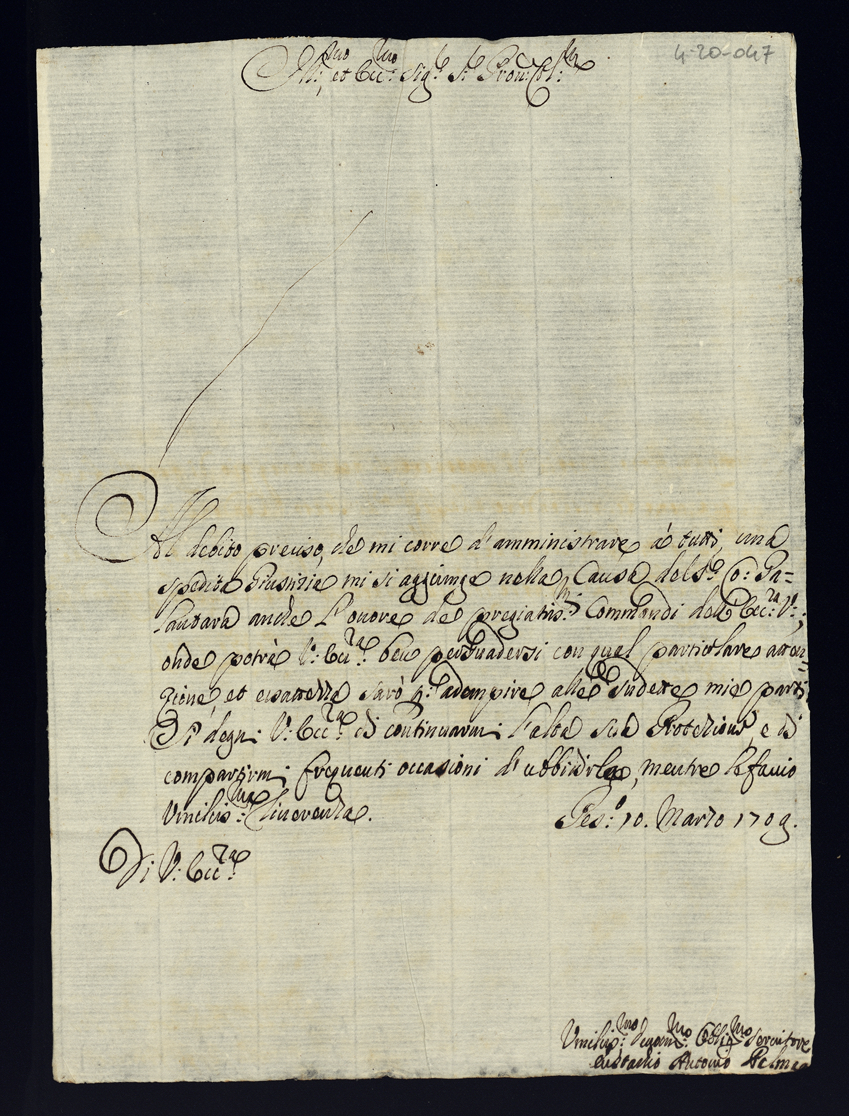 4-20-047
Ill:mo, et Ecc:mo Sig:r S:r Pron: Col:mo
Al debito preciso, che mi corre d'amministrare à tutti una
spedita Giustizia mi si aggiunge nella Causa del S:r Co: Pa=
lautara anche l'onore de pregiatis:mi Commandi dell'Ecc:za V:;
onde potrà V: Ecc:za ben persuadersi con quel particolare atten=
zione, et esattezza sarò p: adempire alle sudette mie parti
Si degni V: Ecc:za di continuarmi l'alta sua Protezione, e di
compartirmi frequenti occasioni d'ubbidirla, mentre le faccio
Vmiliss:ma Riverenza. Pes:o 10. Marzo 1709.
Di V: Ecc:za
Vmilis:mo Deuotis:mo Oblig:mo Servitore
Eustachio Antonio